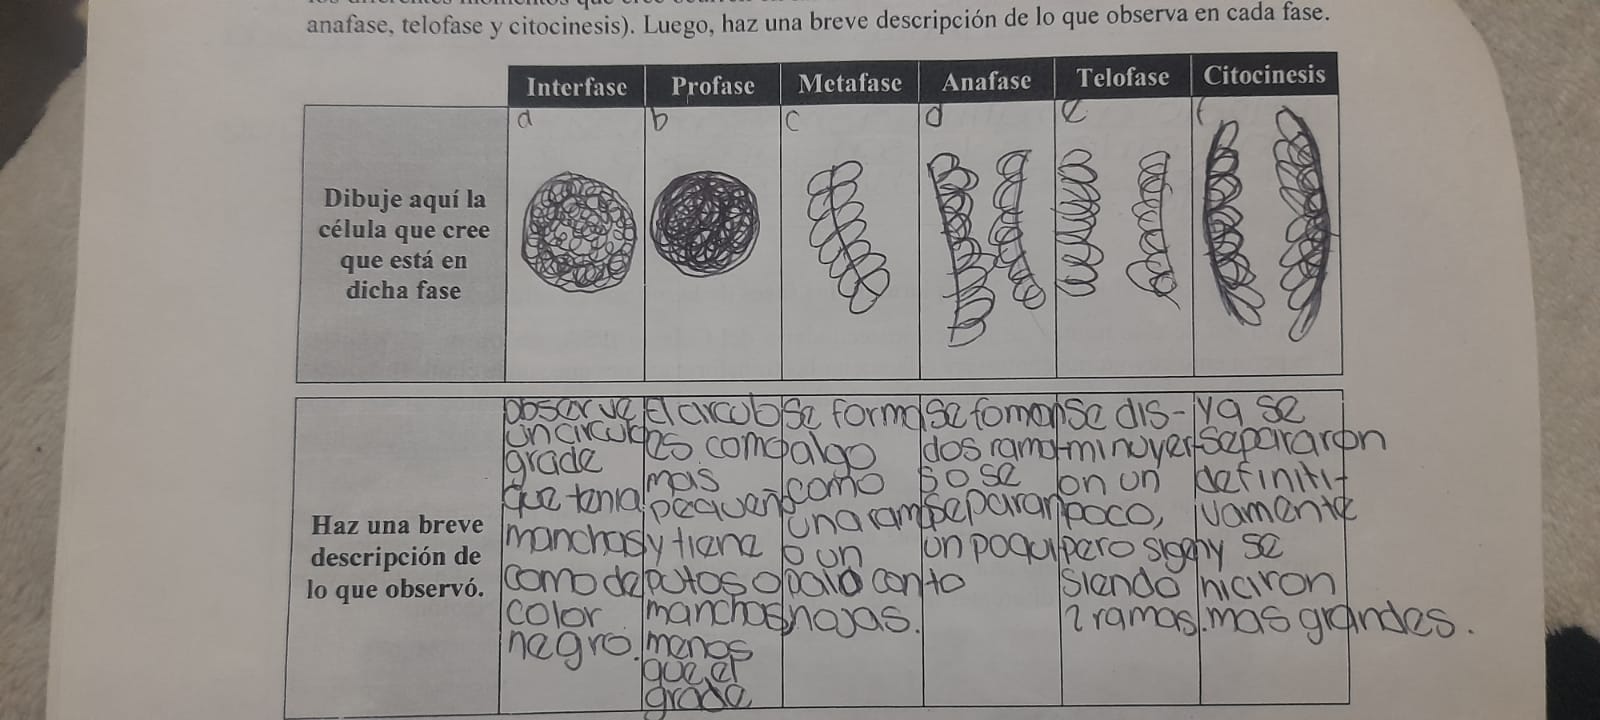 anafase, telofase y citocinesis). Luego, haz una breve descripción de lo que observa en cada fase.
Interfase
Profase
Metafase
Anafase
Telofase
Citocinesis
Dibuje aquí la
célula que cree
que está en
dicha fase
a
b
c
d
e
f
Haz una breve
descripción de
lo que observó.
observe
un circulo
grade
que tenia
manchas
como de
color
negro.
El circulo
es como
mas
pequeño
y tiene
putos o
manchas
menos
que el
grade
Se forma
algo
como
una rama
o un
palo con
hojas.
Se foman
dos rama
s o se
separan
un poqui
to
Se dis-
minuyer
on un
poco,
pero sigen
siendo
2 ramas.
ya se
separaron
definiti-
vamente
y se
hiciron
mas grandes.